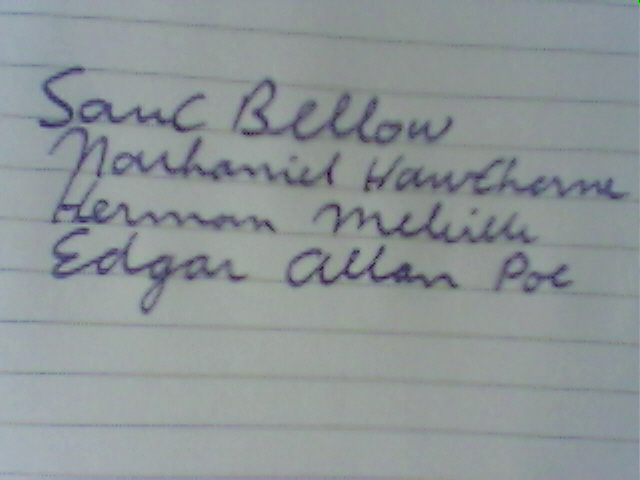 Saul Bellow
Nathaniel Hawthorne
Herman Melville
Edgar Allan Poe